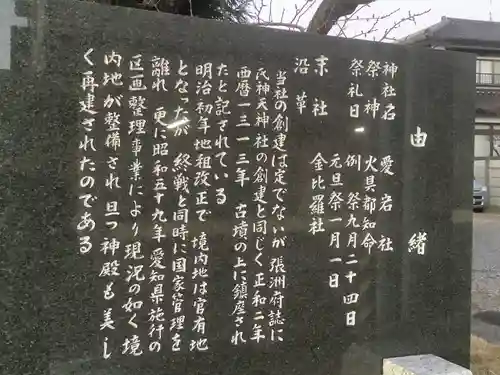 由緒
神社名 愛宕社
祭神 火具都知命
祭礼日 例祭九月二十四日
元旦祭一月一日
末社 金比羅社
沿革
当社の創建は定でないが張洲府誌に
氏神天神社の創建と同じく正和二年
西暦一三一三年 古墳の上に鎮座され
たと記されている
明治初年地租改正で 境内地は官有地
となったが 終戦と同時に国家管理を
離れ 更に昭和五十九年愛知県施行の
区画整理事業により現況の如く境
内地が整備され且つ神殿も美し
く再建されたのである